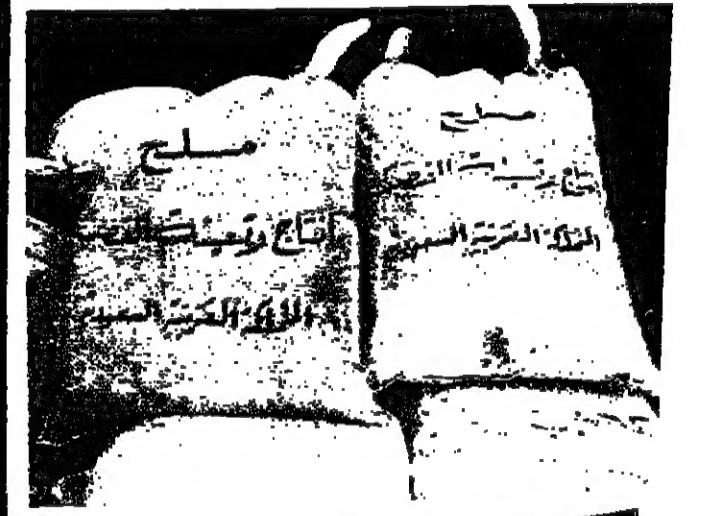 ملح
انتاج وتعبئة القصب
المملكة العربية السعودية
ملح
انتاج وتعبئة القصب
المملكة العربية السعودية